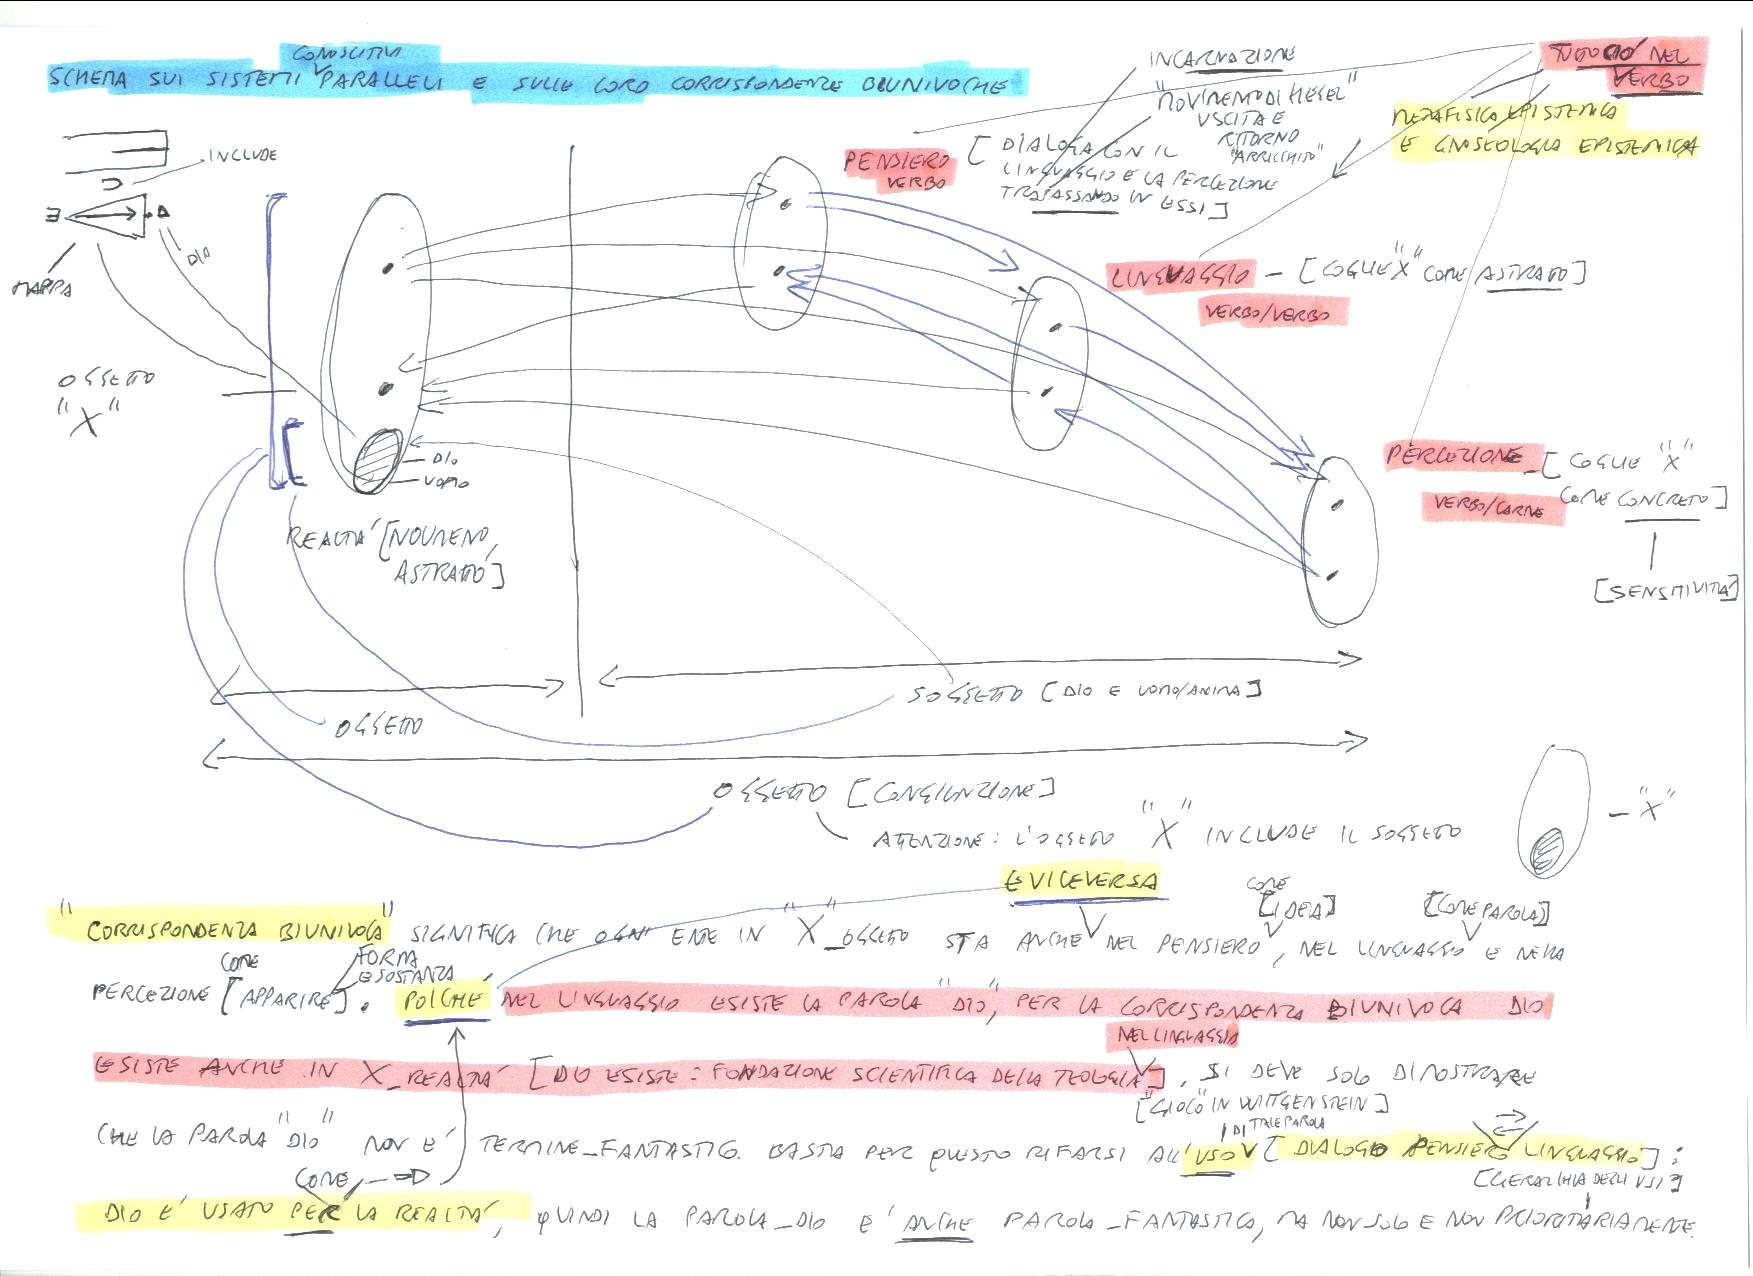 SCHEMA SUI SISTEMI CONOSCITIVI PARALLELI E SULLE LORO CORRISPONDENZE BIUNIVOCHE
INCARNAZIONE
"MOVIMENTO DI HEGEL"
USCITA E
RITORNO
"ARRICCHITO"
TUTTO CIO' NEL
VERBO
METAFISICA EPISTEMICA
E GNOSEOLOGIA EPISTEMICA
INCLUDE
DIO
MAPPA
OGGETTO
"X"
PENSIERO
VERBO
[DIALOGA CON IL
LINGUAGGIO E LA PERCEZIONE
TRAPASSANDO IN ESSI]
LINGUAGGIO - [COGLIE "X" COME ASTRATTO]
VERBO/VERBO
PERCEZIONE - [COGLIE "X"
COME CONCRETO]
VERBO/CARNE
[SENSITIVITA']
DIO
UOMO
REALTA' [NOUMENO,
ASTRATTO]
SOGGETTO [DIO E UOMO/ANIMA]
OGGETTO
OGGETTO [CONGIUNZIONE]
ATTENZIONE: L'OGGETTO "X" INCLUDE IL SOGGETTO
- "X"
E VICEVERSA
COME
[IDEA]
[COME PAROLA]
"CORRISPONDENZA BIUNIVOCA" SIGNIFICA CHE OGNI ENTE IN "X"_OGGETTO STA ANCHE NEL PENSIERO, NEL LINGUAGGIO E NELLA
COME
FORMA
E SOSTANZA
PERCEZIONE [APPARIRE]. POICHE' NEL LINGUAGGIO ESISTE LA PAROLA "DIO", PER LA CORRISPONDENZA BIUNIVOCA DIO
NEL LINGUAGGIO
ESISTE ANCHE IN X_REALTA' [DIO ESISTE: FONDAZIONE SCIENTIFICA DELLA TEOLOGIA], SI DEVE SOLO DIMOSTRARE
["GIOCO" IN WITTGENSTEIN]
DI TALE PAROLA
CHE LA PAROLA "DIO" NON E' TERMINE_FANTASTICO. BASTA PER QUESTO RIFARSI ALL'USO [DIALOGO PENSIERO LINGUAGGIO]:
COME
[GERARCHIA DEGLI USI]
DIO E' USATO PER LA REALTA', QUINDI LA PAROLA_DIO E' ANCHE PAROLA_FANTASTICA, MA NON SOLO E NON PRIORITARIAMENTE.